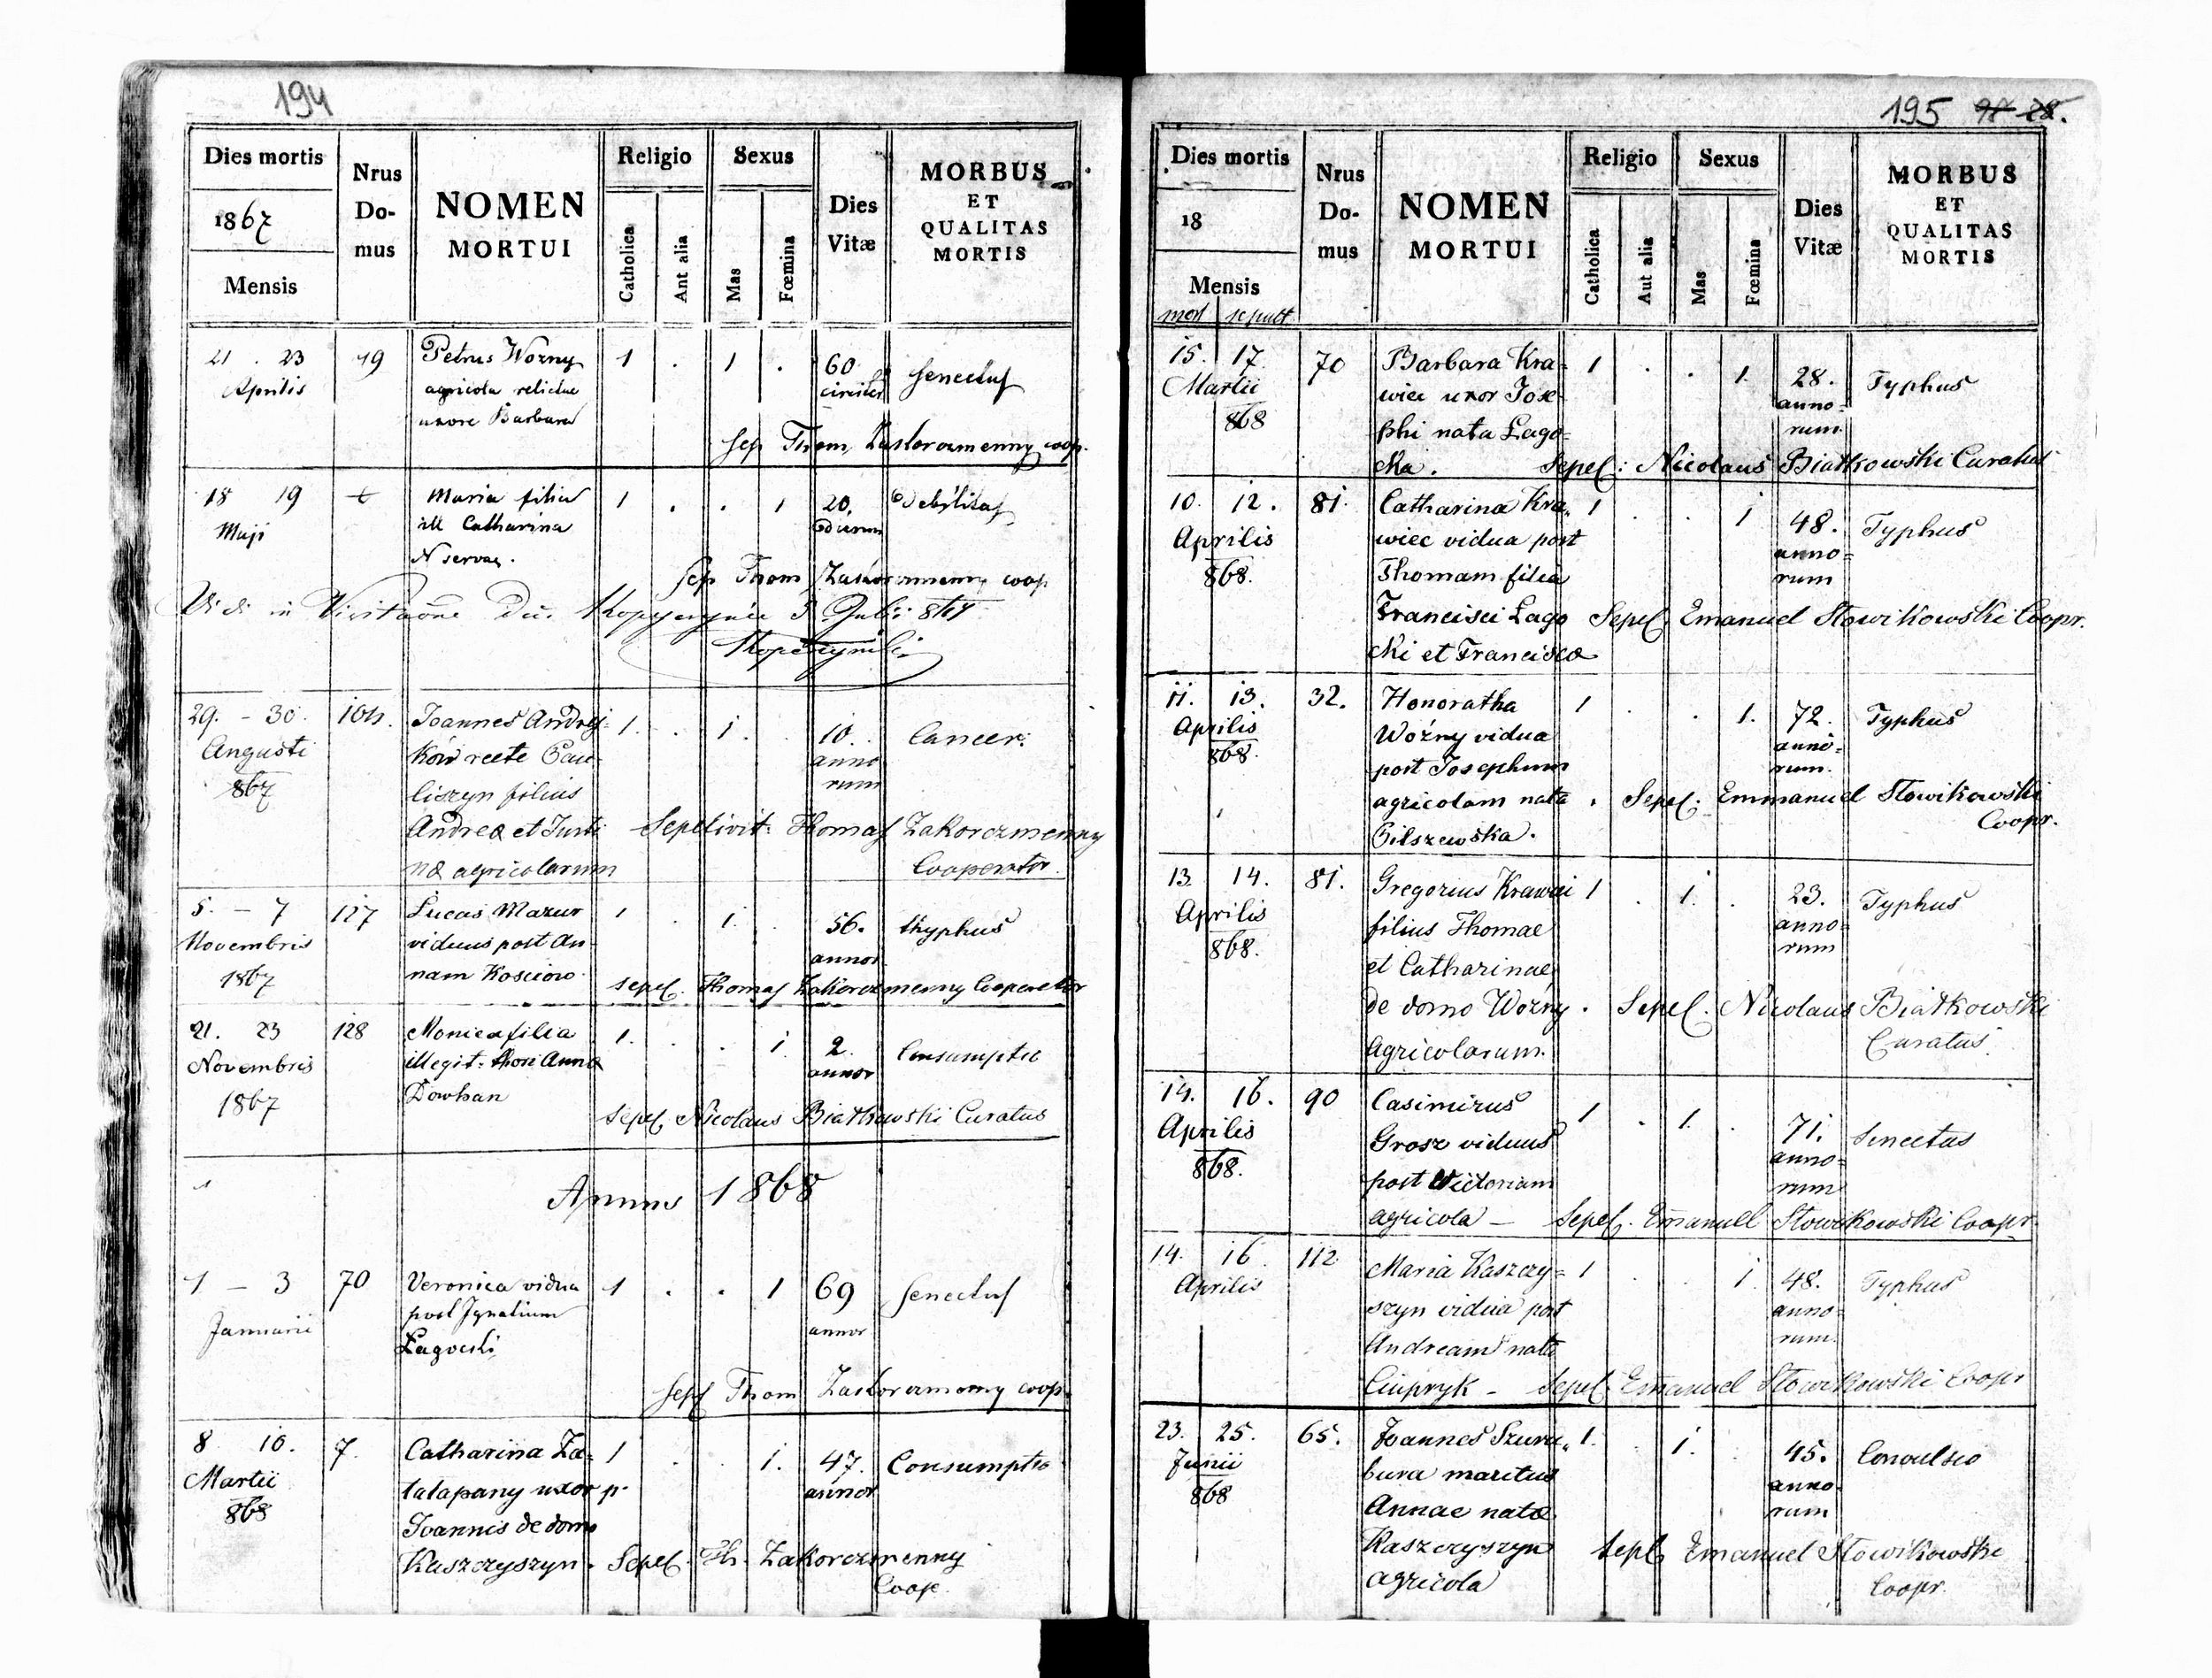 194
Dies mortis
1867
Mensis
Nrus
Do-
mus
NOMEN
MORTUI
Religio
Catholica
Aut alia
Sexus
Mas
Fœmina
Dies
Vitæ
MORBUS
ET
QUALITAS
MORTIS
21 . 23 49 Petrus Wozny 1 . 1 . 60 Senectus
Aprilis agricola relictae circiter
uxore Barbara
Sep Thom Zakorczmenny coop.
18 19 Maria filia 1 . . 1 20, Debilitas
Maji ill Catharina dierum
N servae.
Sep Thom Zakorczmenny coop
Vidi in 
29. - 30. 104. Joannes Andrej- 1. . 1. . 10. Cancer.
Augusti ków recte Pau- anno
867 liszyn filius rum
Andreæ et Justi
næ agricolarum
Sepelivit Thomas Zakorczmenny
Cooperator.
5. - 7 127 Lucas Mazur 1 . 1. . 56. thyphus
Novembris viduus post An- annor
1867 nam Kosciow
sepel. Thomas Zakorczmenny Cooperator
21. 23 128 Monica filia 1. . . 1. 2. Consumptio
Novembris illegit. thori Anna annor
1867 Dowhan
Sepel. Nicolaus Białkowski Curatus
Annus 1868
1 - 3 70 Veronica vidua 1 . . 1 69 Senectus
Januarii post Ignatium annor
Łagocki
Sepl Thom Zakorczmenny coop.
8 10. 7. Catharina Za- 1 . . 1. 47. Consumptio
Martii talapany uxor p. annor
868 Joannis de domo
Kaszczyszyn. Sepel. Th. Zakorczmenny
Coop.
195 97 88.
Dies mortis
18
Mensis
mort sepult
Nrus
Do-
mus
NOMEN
MORTUI
Religio
Catholica
Aut alia
Sexus
Mas
Fœmina
Dies
Vitæ
MORBUS
ET
QUALITAS
MORTIS
15. 17. 70 Barbara Kra- 1 . . 1. 28. Typhus
Martii wiec uxor Jose- anno-
868 phi nata Łago- rum
cka. Sepel: Nicolaus Białkowski Curatus
10. 12. 81. Catharina Kra- 1 . . 1 48. Typhus
Aprilis wiec vidua post anno-
868. Thomam filia rum
Francisci Łago Sepel. Emanuel Słowikowski Coopr.
cki et Francisca
11. 13. 32. Honoratha 1 . . 1. 72. Typhus
Aprilis Woźny vidua anno-
868. post Josephum rum.
agricolam nata . Sepel. Emmanuel Słowikowski
Gilszewska. Coopr.
13. 14. 81. Gregorius Krawiec 1 . 1. . 23. Typhus
Aprilis filius Thomae anno-
868. et Catharinae rum
de domo Woźny . Sepel. Nicolaus Białkowski
agricolarum. Curatus.
14. 16. 90 Casimirus 1 . 1. . 71. Senectus
Aprilis Grosz viduus anno-
868. post Victoriam rum
agricola — Sepel. Emanuel Słowikowski Coopr.
14. 16. 112 Maria Kaszczy- 1 . . 1. 48. Typhus
Aprilis szyn vidua post anno-
Andream nata rum.
Ciupryk - Sepel. Emanuel Słowikowski Coopr
23. 25. 65. Joannes Szura- 1. . 1. . 45. Convulsio
Junii bura maritus anno-
868 Annae nata rum
Kaszczyszyn Sepel. Emanuel Słowikowski
agricola Coopr.